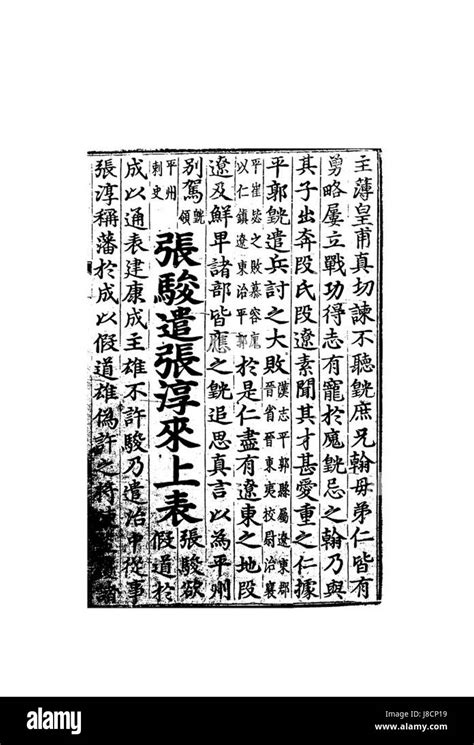 主薄皇甫真切諫不聽皝庶兄翰毋弟仁皆有
勇略屢立戰功得志有寵於廆皝忌之翰乃與
其子出奔段氏段遼素聞其才甚愛重之仁據
平郭皝遣兵討之大敗漢志平郭縣屬遼東郡
晉省晉東夷校尉治襄
平崔毖之敗慕容廆
以仁鎮遼東治平郭於是仁盡有遼東之地段
遼及鮮卑諸部皆應之皝追思真言以為平州
別駕皝領
平州刺史
張駿遣張淳來上表
張駿欲
假道於
成以通表建康成主雄不許駿乃遣治中從事
張淳稱藩於成以假道雄偽許之將
alamy
Image ID: J8CP19
www.alamy.com